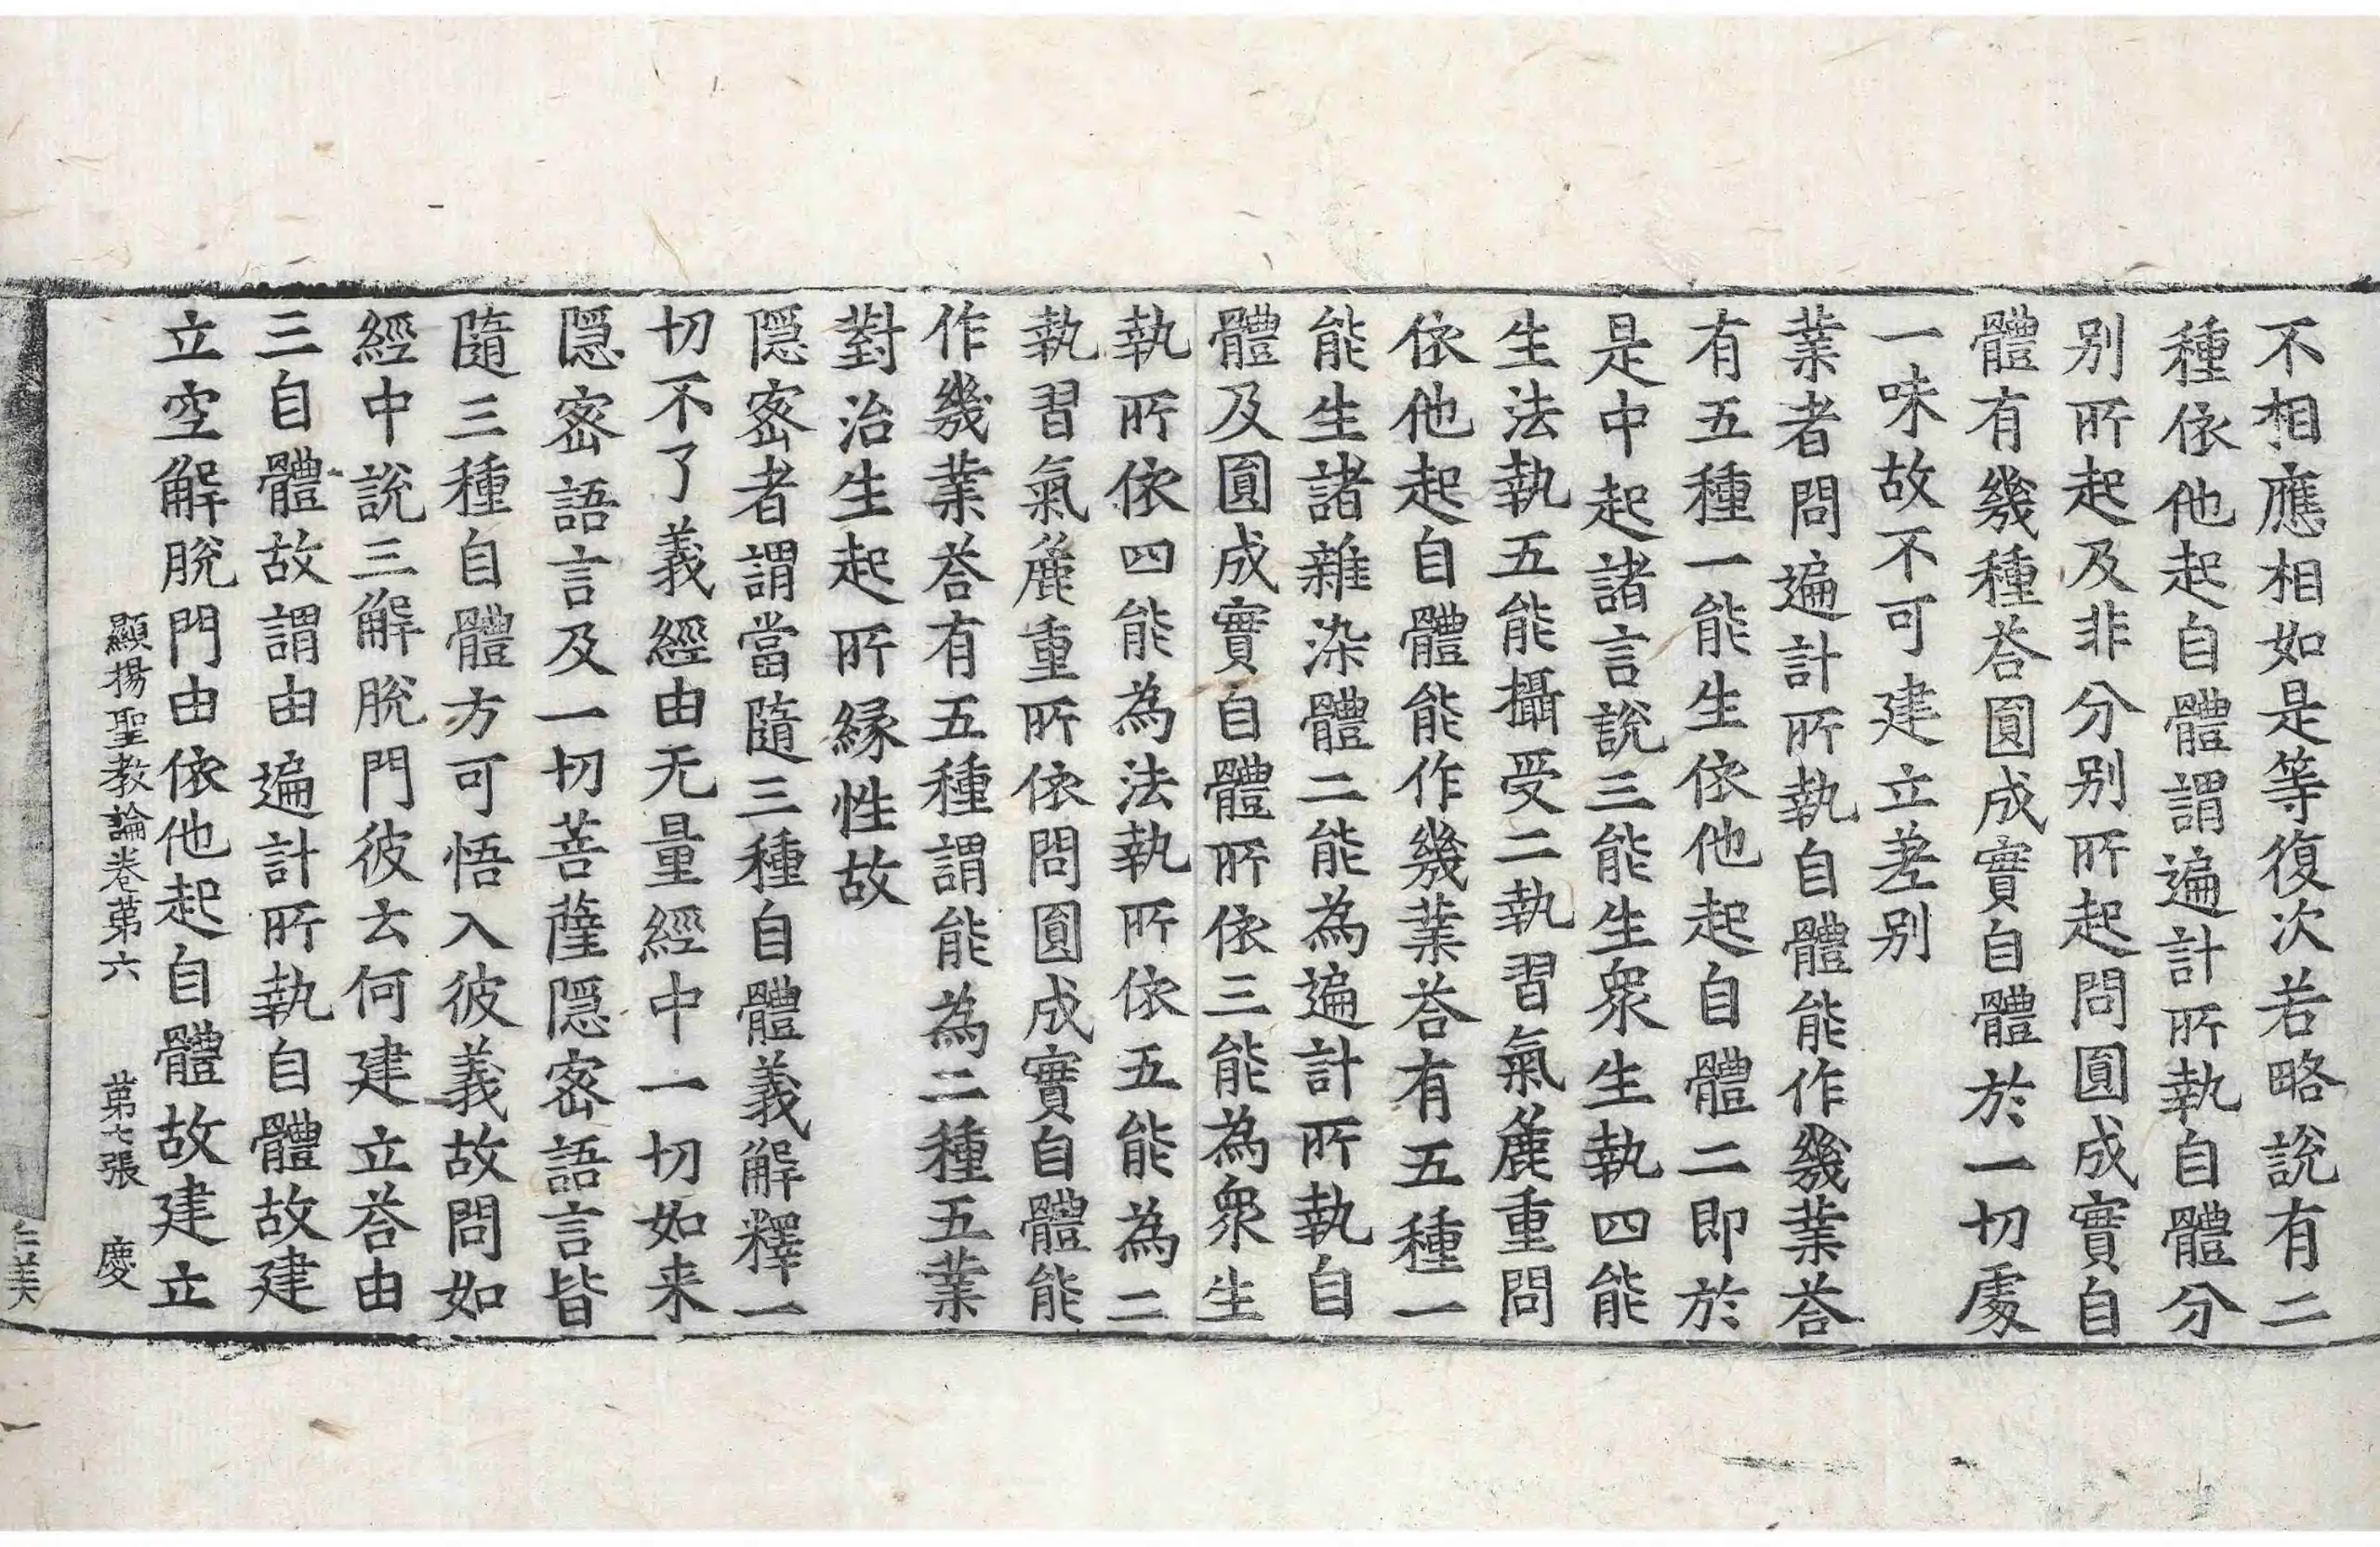 不相應相如是等復次若略說有二
種依他起自體謂遍計所執自體分
别所起及非分别所起問圓成實自
體有幾種荅圓成實自體於一切處
一味故不可建立差别
業者問遍計所執自體能作幾業荅
有五種一能生依他起自體二即於
是中起諸言說三能生衆生執四能
生法執五能攝受二執習氣麁重問
依他起自體能作幾業荅有五種一
能生諸雜染體二能為遍計所執自
體及圓成實自體所依三能為衆生
執所依四能為法執所依五能為二
執習氣麁重所依問圓成實自體能
作幾業荅有五種謂能為二種五業
對治生起所縁性故
隱密者謂當隨三種自體義解釋一
切不了義經由无量經中一切如来
隱密語言及一切菩薩隱密語言皆
隨三種自體方可悟入彼義故問如
經中說三解脫門彼云何建立荅由
三自體故謂由遍計所執自體故建
立空解脫門由依他起自體故建立
顯揚聖教論卷苐六 苐七張 慶
仁美